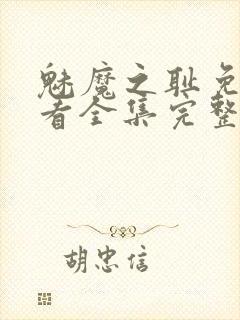 魅魔之耻免
者全集完整
胡忠信